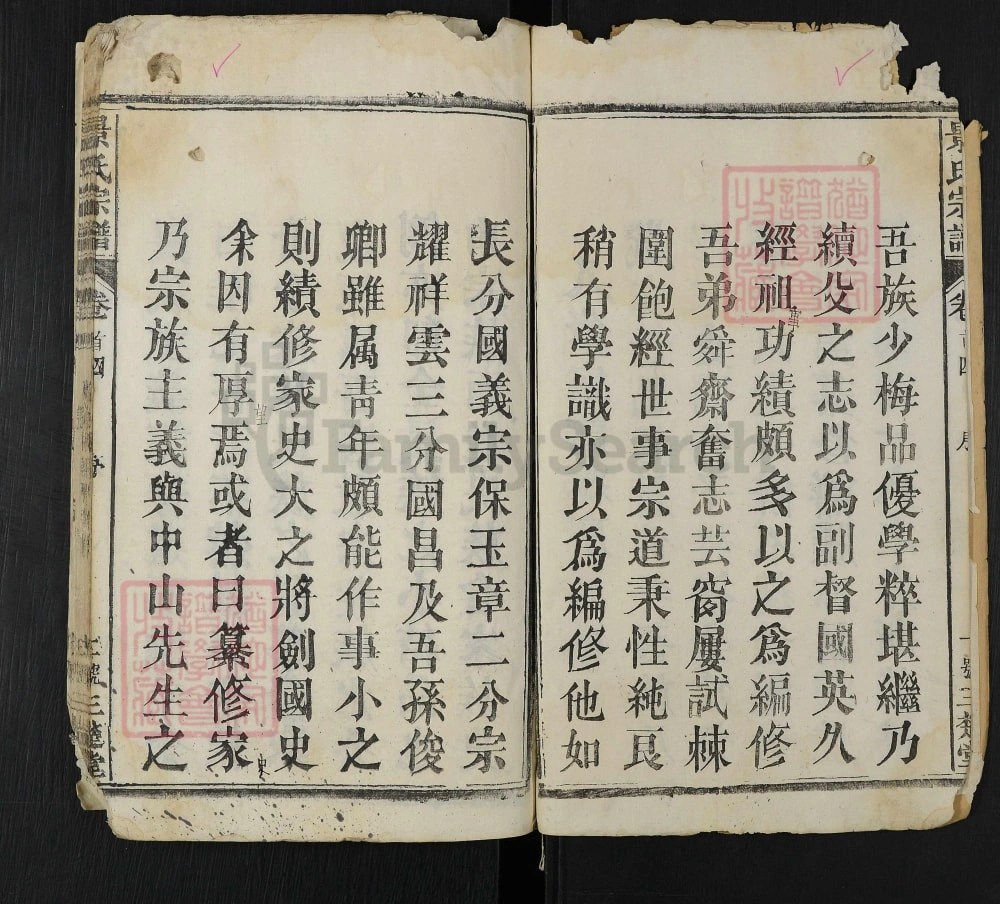 吾族少梅品優學粹堪繼乃
續父之志以為副督國英久
經祖功績頗多以之為編修
吾弟舜齋奮志芸窗屢試棘
圍飽經世事宗道秉性純良
稍有學識亦以為編修他如
長分國義宗保玉章二分宗
耀祥雲三分國昌及吾孫俊
卿雖属青年頗能作事小之
則績修家史大之將劍國史
余因有厚焉或者曰纂修家
乃宗族主義與中山先生之
景氏宗譜
卷首四
FamilySearch